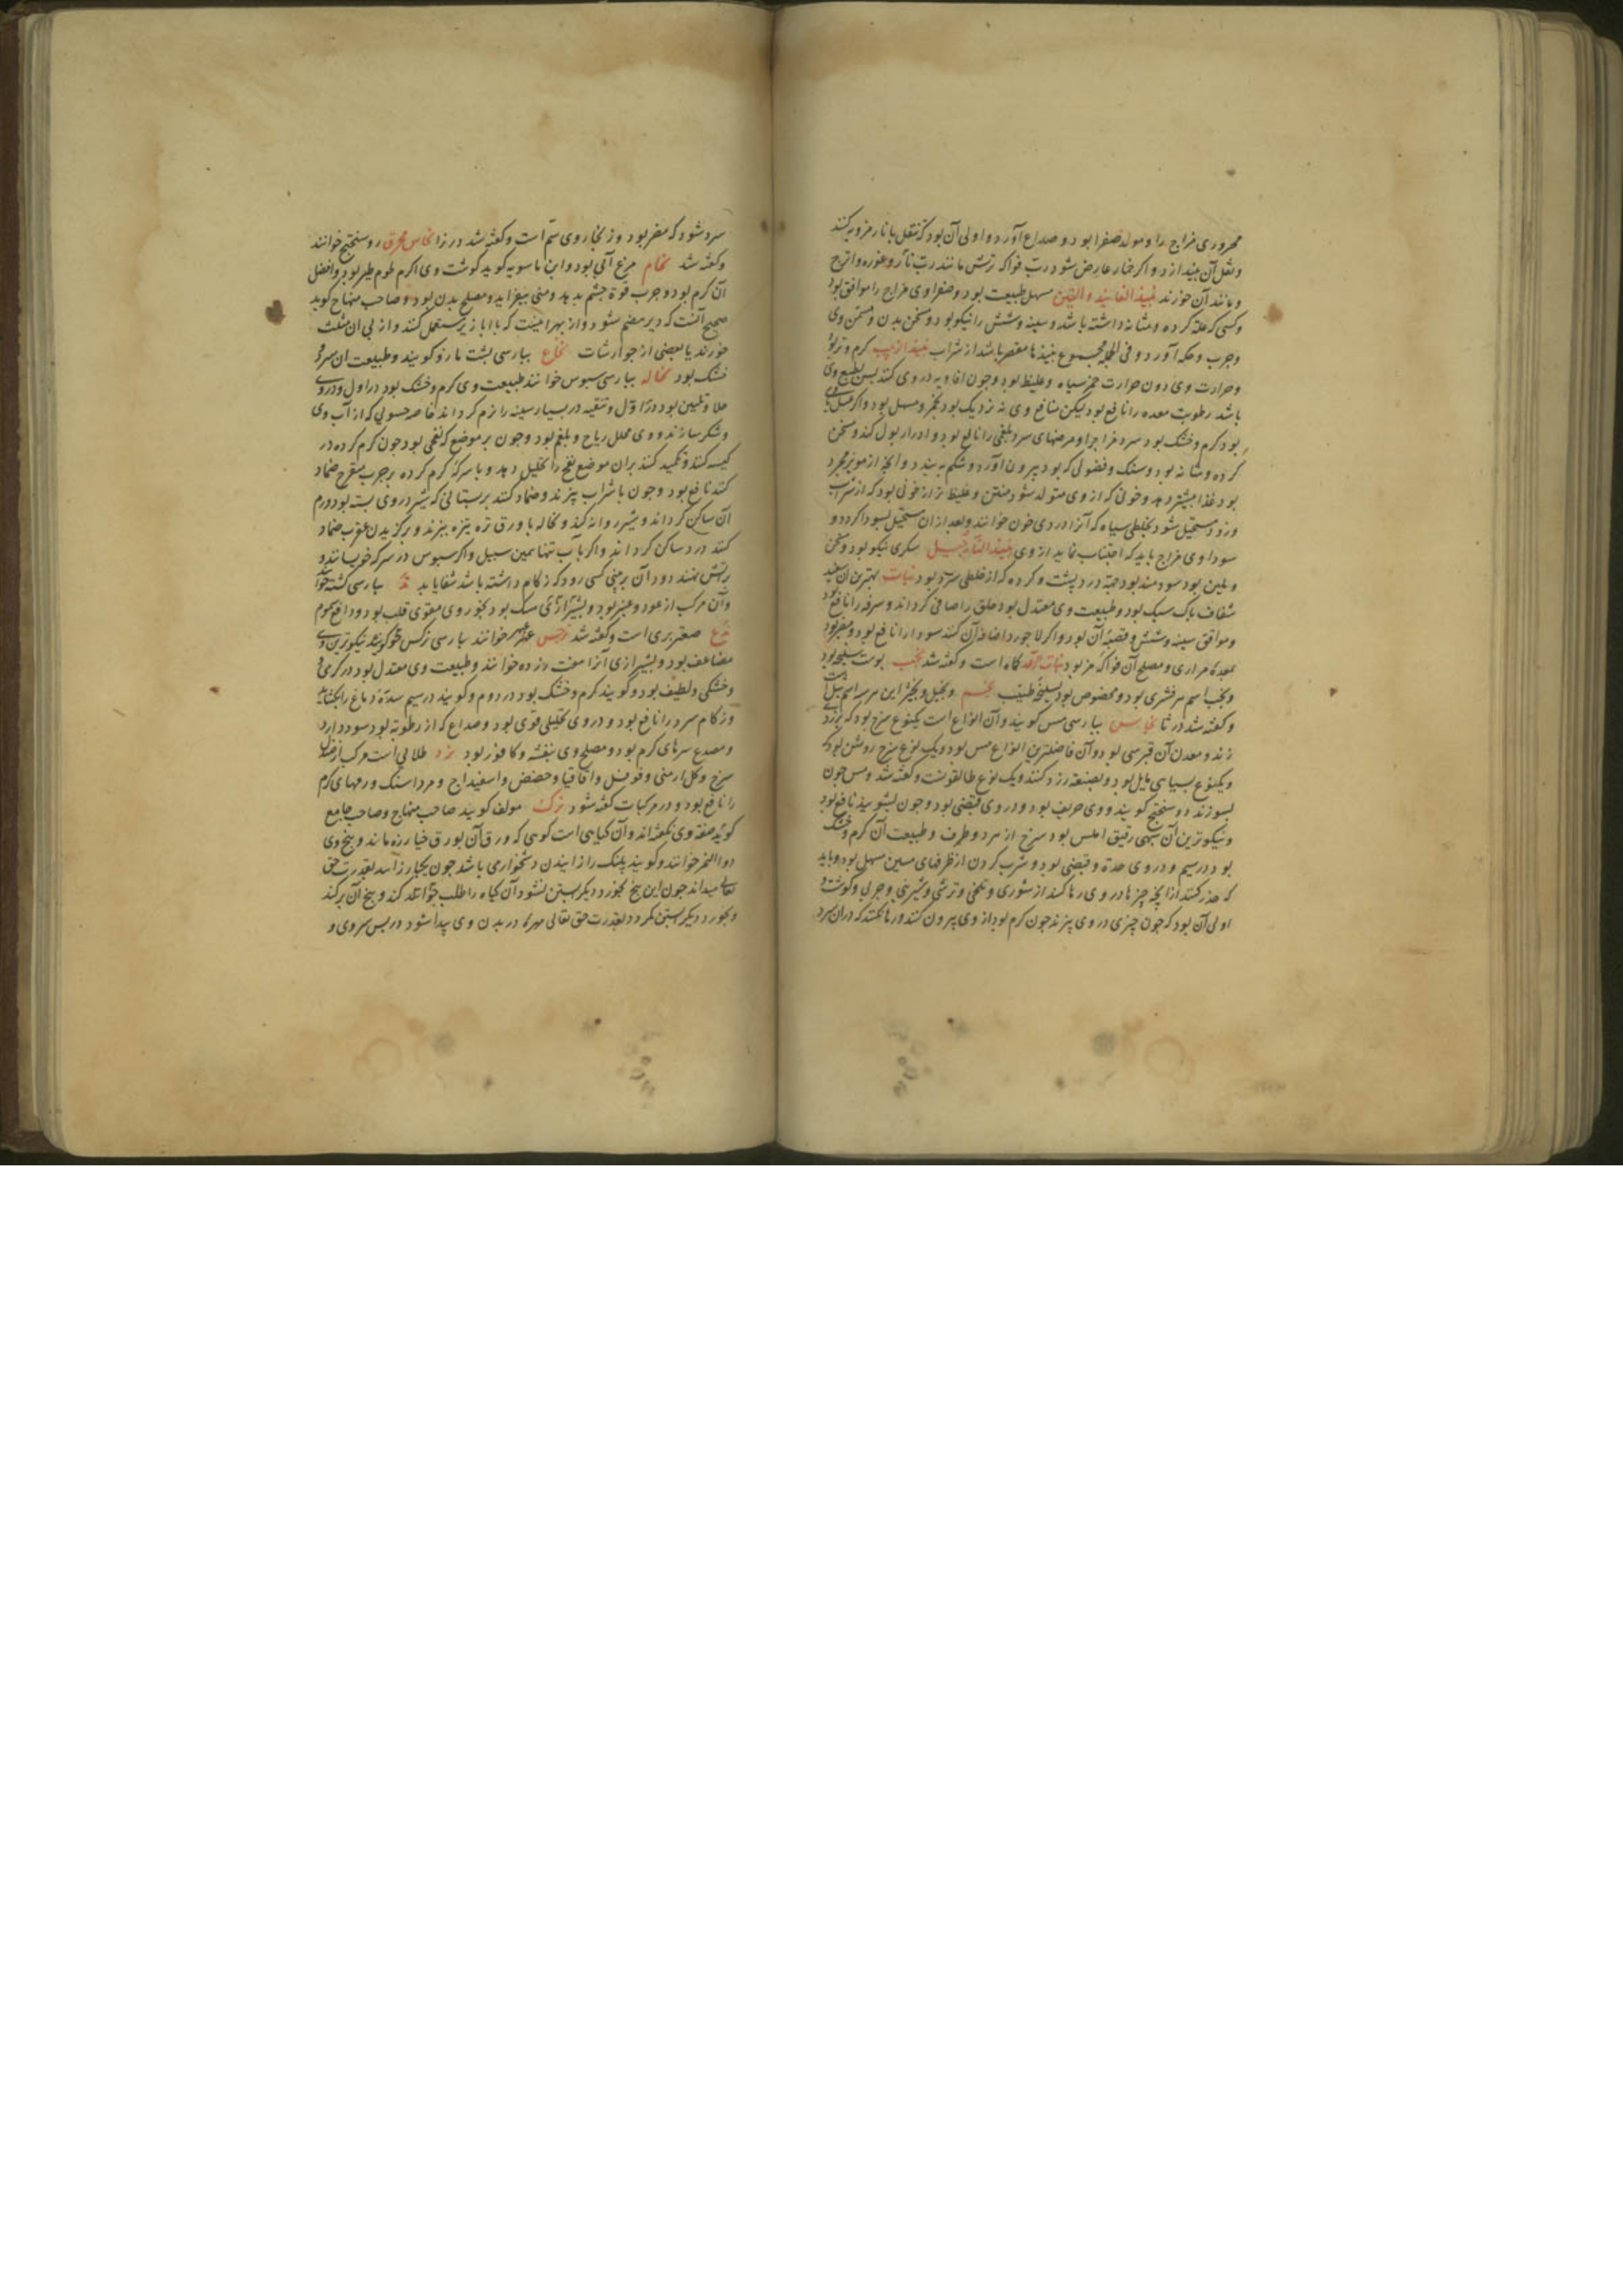 محروری مزاج را و مولد صفرا بود و صداع آورد و اولی آن بود که تنقل با نار مز و به کنند
و ثقل آن بیندازد و اکر خمار عارض شود رب فواکه ترش مانند رب نار و غوره و اترج
و مانند آن خورند نبیذ الفانید و التین مسهل طبیعت بود و صفراوی مزاج را موافق بود
و کسی که علة کرده و مثانه داشته باشد و سینه و شش را نیکو بود و مسخن بدن و مسمن وی
و جرب و حکه آورد و فی الجمله مجموع نبیذها مقصر باشد از شراب نبیذ الزبیب کرم و تر بود
و حرارت وی دون حرارت خمر سیاه و غلیظ بود و چون افاویه در وی کنند
باشد رطوبت معده را نافع بود لیکن منافع وی نه نزدیک بود بخمر و عسل بود و اکر عسل با
بود کرم و خشک بود سرد مزاجرا و مرضهای سرد بلغمی را نافع بود و ادرار بول کند و مسخن
کرده و مثانه بود و سنک و فضولی که بود بیرون آورد و شکم به بندد و آنچه از مویز مجرد
بود غذا بیشتر دهد و خونی که از وی متولد شود متین و غلیظ تر از خونی بود که از شراب
و زود مستحیل شود بخلطی سیاه که آنرا دردی خون خوانند و بعد از ان مستحیل بسودا کردد و
سوداوی مزاج باید که اجتناب نماید از وی نبیذ النارجیل سکری نیکو بود و مسخن
و ملین بود سودمند بود جهة درد پشت و کرده که از خلطی سرد بود نبات بهترین آن سفید
شفاف پاک سبک بود و طبیعت وی معتدل بود حلق را صافی کرداند و سرفه را نافع بود
و موافق سینه و شش و قصبه آن بود و اکر لاجورد اضافه آن کنند سودا را نافع بود و مضر بود
بمعده مراری و مصلح آن فواکه مز بود نبات کاه است و کفته شد نجب پوست سلیخه بود
و نجب اسم هر قشری بود و مخصوص بود بسلیخه طیب نجم و نجیل و نجیر این هر سه اسم ثیل است
و کفته شد در ثا نحاس بپارسی مس کویند و آن انواع است یکنوع سرخ بود که بزردی
زند و معدن آن قبرسی بود و آن فاضلترین انواع مس بود و یک نوع سرخ روشن بود که
و یکنوع بسیاهی مایل بود و بصنعة زرد کنند و یک نوع طالقونست و کفته شد و مس چون
بسوزند روسختج کویند و وی حریف بود و در وی قبضی بود و چون بشویند نافع بود
و نیکوترین آن سهی رقیق املس بود سرخ از سرد و طرف و طبیعت آن کرم و خشک
بود در سیم و در وی حدة و قبضی بود و شرب کردن از ظرفهای مسین مسهل بود و باید
که حذر کنند از آنچه چیزها در وی رها کنند از شوری و تلخی و ترشی و شیرینی و چربی و کوشت و
اولی آن بود که چون چیزی در وی پزند چون کرم بود از وی بیرون کنند و رها نکنند که در ان سرد
سرد شود که مضر بود و زنجار وی سم است و کفته شد در زا نحاس محرق روسختج خوانند
و کفته شد نحام مرغ آبی بود و ابن ماسویه کوید کوشت وی اکرم لحوم طیر بود و افضل
آن کرم بود و چرب قوة چشم بدهد و منی بیفزاید و مصلح بدن بود و صاحب منهاج کوید
صحیح آنست که دیر هضم شود و از بهر اینست که با ابازیر مستعمل کنند و از پی آن مثلث
خورند یا بعضی از جوارشات نخاع بپارسی پشت مازو کویند و طبیعت ان سرد و
خشک بود نخاله بپارسی سبوس خوانند طبیعت وی کرم و خشک بود در اول و در وی
جلا و تلیین بود در اول و تنقیه در بسیار سینه را نرم کرداند خاصه حسوئی که از آب وی
و شکر سازند و وی محلل ریاح و بلغم بود و چون بر موضع که نفخی بود چون کرم کرده در
کیسه کنند و تکمید کنند بران موضع نفخ را تحلیل دهد و با سرکه کرم کرده بر جرب متقرح ضماد
کنند نافع بود و چون با شراب پزند و ضماد کنند بر پستانی که شیر در وی بسته بود ورم
آن ساکن کرداند و شیر روانه کند و نخاله با ورق تره بپزند و بر کزیدن عقرب ضماد
کنند درد ساکن کرداند و اکر بآب تنها همین سبیل و اکر سبوس در سرکه خیسانند و
بر آتش نهند دود آن بر بینی کسی رود که زکام داشته باشد شفا یابد ند بپارسی کشته خوانند
و آن مرکب از عود و عنبر بود و بشیرازی سک بود بخور وی مقوی قلب بود و دافع سموم
ندغ صعتر بری است و کفته شد نرجس عبهر خوانند بپارسی نرکس کویند نیکوترین وی
مضاعف بود و بشیرازی آنرا هفت زده خوانند و طبیعت وی معتدل بود در کرمی و
و خشکی و لطیف بود و کویند کرم و خشک بود در دوم و کویند در سیم سدة دماغ را بکشاید
و زکام سرد را نافع بود و در وی تحلیلی قوی بود و صداع که از رطوبة بود سود دارد
و مصدع سرهای کرم بود و مصلح وی بنفشه و کافور بود نرد طلائی است مرکب از صندل
سرخ و کل ارمنی و فوفل و اقاقیا و حضض و اسفیداج و مرداسنک ورمهای کرم
را نافع بود و در مرکبات کفته شود نزک مولف کوید صاحب منهاج و صاحب جامع
کوید صفة وی نکفته اند و آن کیاهی است کوهی که ورق آن بورق خیارزه ماند و بیخ وی
دوا النمر خوانند و کویند پلنک را زاییدن دشخواری باشد چون یکبار زاید بقدرت حق
تعالی میداند چون این بیخ بخورد دیکر آبستن نشود آن کیاه را طلب کند و بیخ آن برکند
و بخورد دیکر آبستن نکردد بقدرت حق تعالی مهره در بدن وی پیدا شود در پس سروی و